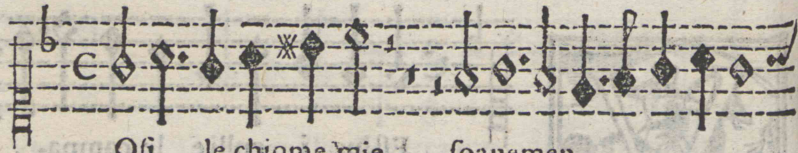 Oſi le chiome mie ſoauemen